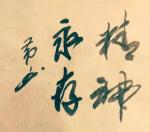 精神
永存